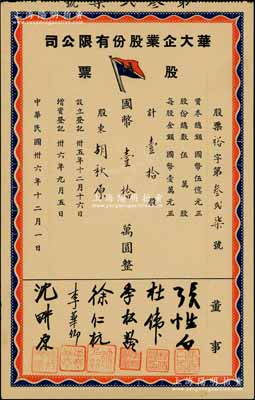 華大企業股份有限公司
股票
股票裕字第叁弍柒號
資本總額 國幣伍億元正
股份總數 伍萬股
每股金額 國幣壹萬元正
計壹拾股
國幣壹拾萬圓整
股東 胡秋原
設立登記 卅五年十二月十六日
增資登記 卅六年九月五日
中華民國卅六年十二月一日
董事
杜偉
李板
徐仁杭
李華卿
沈畊原